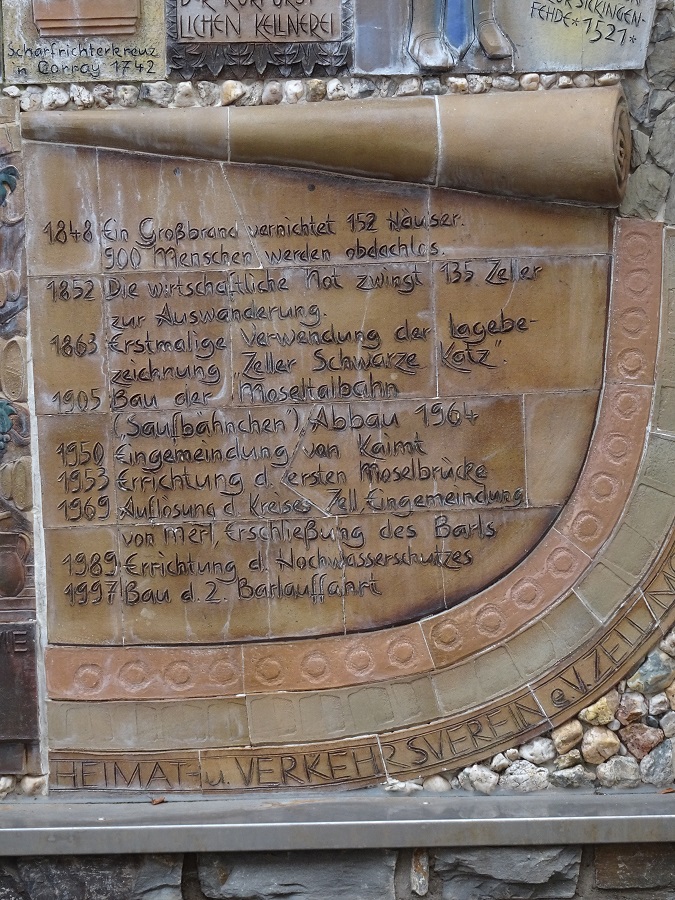 Scharfrichterkreuz
in Corray 1742
DER KURFÜRST
LICHEN KELLNEREI
KUR SICKINGEN-
FEHDE*1521*
1848 Ein Großbrand vernichtet 152 Häuser.
900 Menschen werden obdachlos.
1852 Die wirtschaftliche Not zwingt 135 Zeller
zur Auswanderung.
1863 Erstmalige Verwendung der Lagebe-
zeichnung „Zeller Schwarze Katz".
1905 Bau der Moseltalbahn
("Saufbähnchen") Abbau 1964
1950 Eingemeindung von Kaimt
1953 Errichtung d. ersten Moselbrücke
1969 Auflösung d. Kreises Zell, Eingemeindung
von Merl, Erschließung des Barls
1989 Errichtung d. Hochwasserschutzes
1997 Bau d. 2. Barlauffahrt
HEIMAT- u. VERKEHRSVEREIN e.V. ZELL